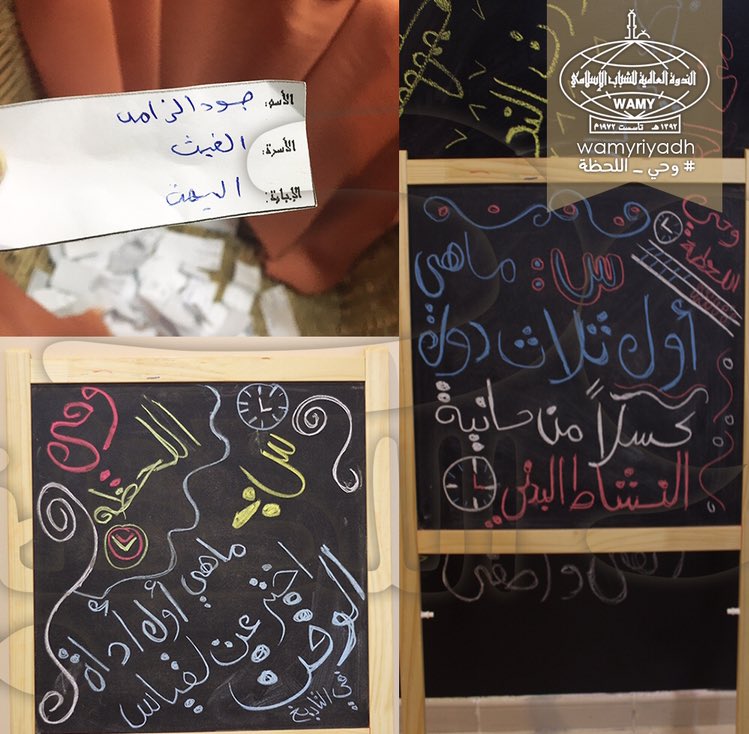 الأسم: جود الزامل
الأسرة: الغيث
الإجابة: اليمن
الندوة العالمية للشباب الإسلامي
WAMY
تأسست ١٩٧٢م
١٣٩٢هـ
wamyriyadh
# وحي _ اللحظة
وحي
اللحظة
س:
ماهي
أول ثلاث دولة
كسلاً من حانية
النشاط البدني
وحي
اللحظة
س:
ماهي أول أداة
اخترعت لقياس
الوقت
في التاريخ